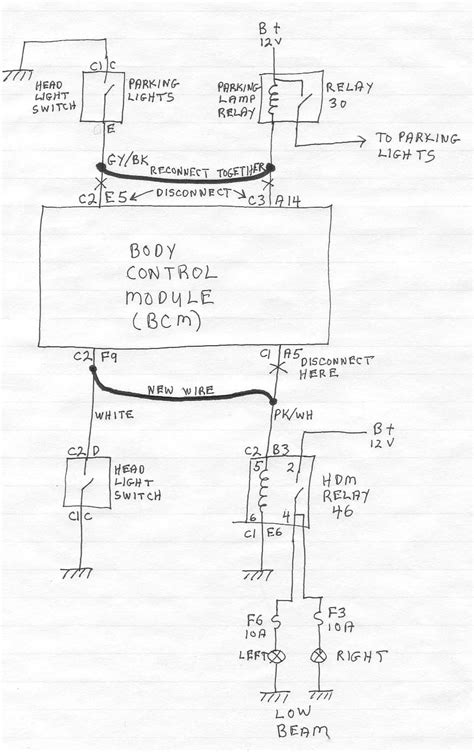 B+
12V
C1 C
HEAD
LIGHT
SWITCH
PARKING
LIGHTS
E
PARKING
LAMP
RELAY
RELAY
30
TO PARKING
LIGHTS
GY/BK
RECONNECT TOGETHER
C2 E5
DISCONNECT
C3 A14
BODY
CONTROL
MODULE
(BCM)
C2 F9
C1 A5
DISCONNECT
HERE
NEW WIRE
WHITE
PK/WH
B+
12V
C2 D
HEAD
LIGHT
SWITCH
C1 C
C2 B3
5 2
HDM
RELAY
46
6 4
C1 E6
F6
10A
F3
10A
LEFT
RIGHT
LOW
BEAM